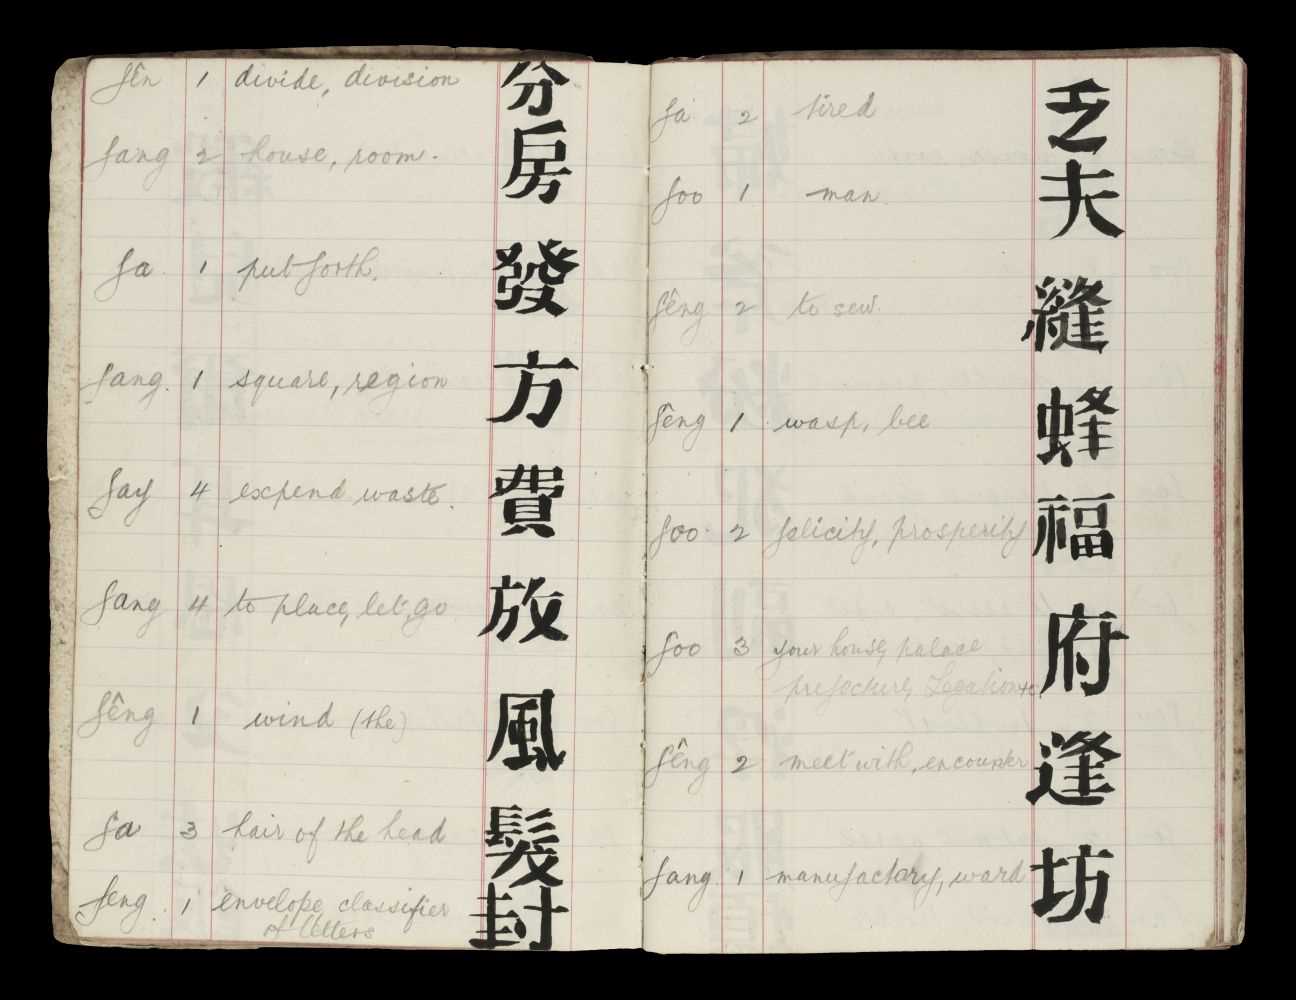 fên 1 divide, division 分
fang 2 house, room. 房
fa 1 put forth. 發
fang. 1 square, region 方
fay 4 expend waste. 費
fang 4 to place, let, go 放
fêng 1 wind (the) 風
fa 3 hair of the head 髮
feng. 1 envelope, classifier 封
of letters
fa 2 tired 乏
foo 1 man. 夫
fêng 2 to sew. 縫
fêng 1 wasp, bee 蜂
foo. 2 felicity, prosperity 福
foo 3 your house, palace 府
prefecture, Legation
fêng 2 meet with, encounter 逢
fang. 1 manufactory, ward 坊